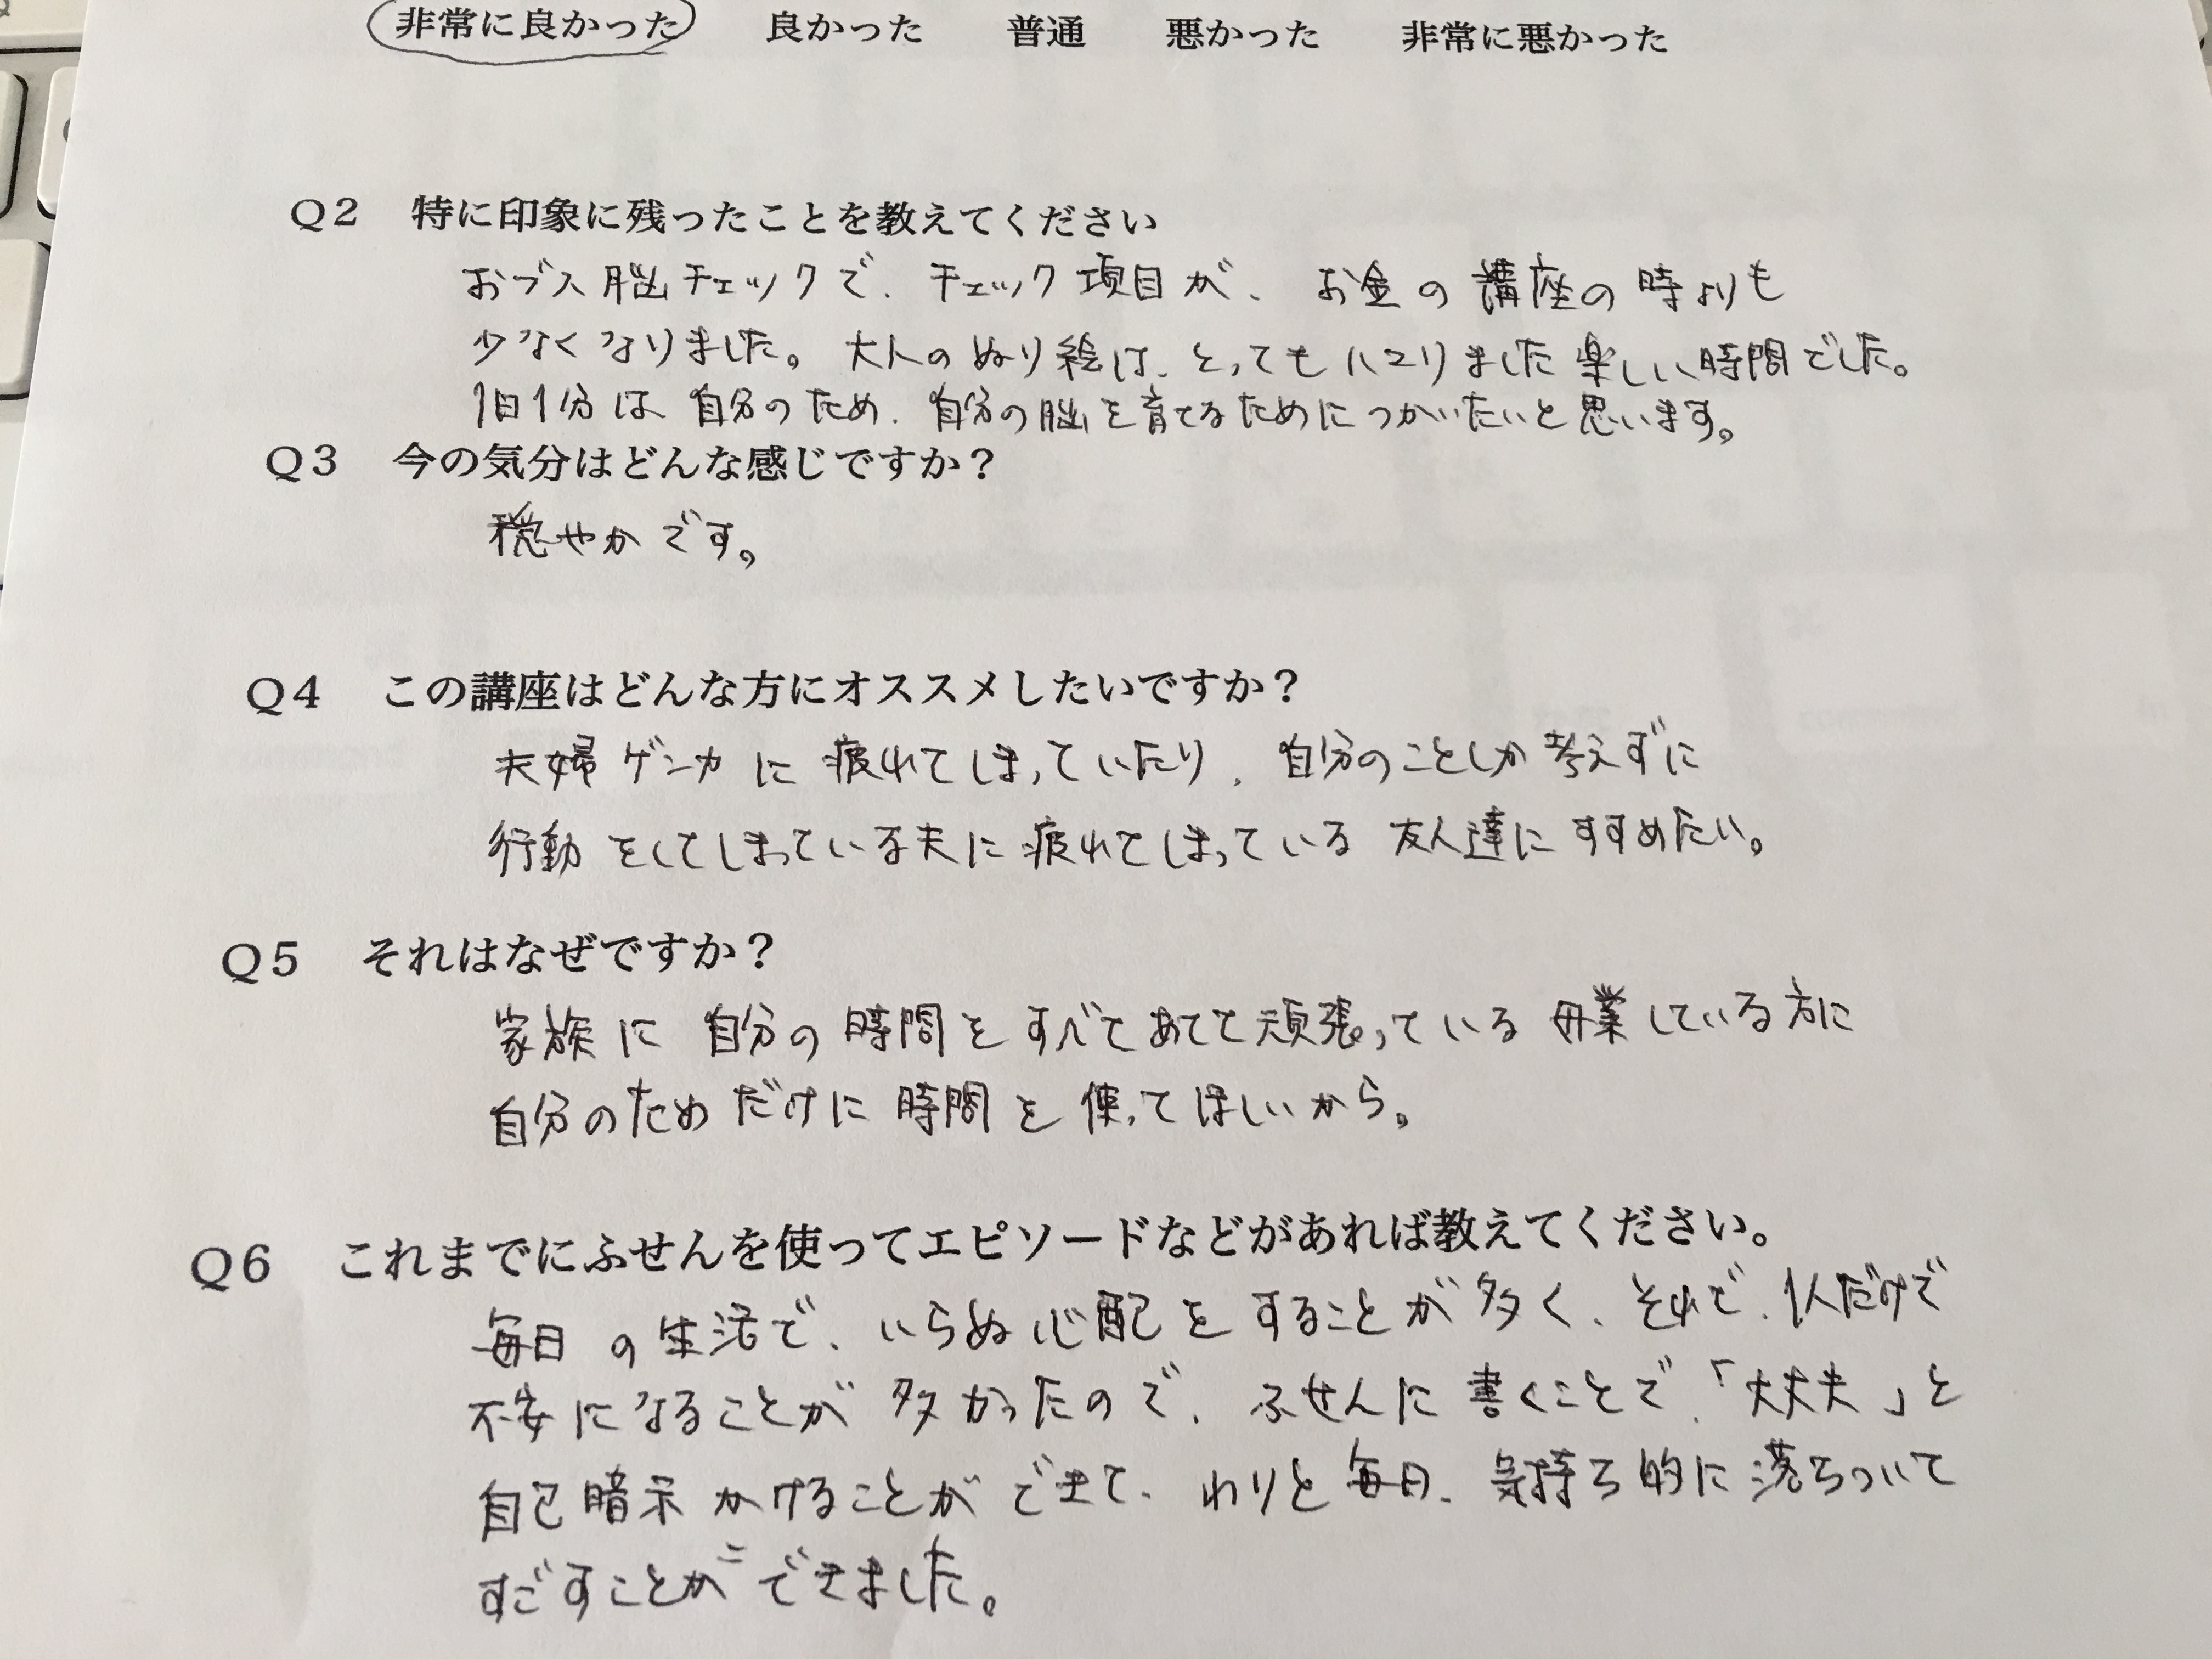 非常に良かった 良かった 普通 悪かった 非常に悪かった
Q2 特に印象に残ったことを教えてください
おブス脳チェックで、チェック項目が、お金の講座の時よりも
少なくなりました。大人のぬり絵は、とってもハマりました楽しい時間でした。
1日1分は自分のため、自分の脳を育てるためにつかいたいと思います。
Q3 今の気分はどんな感じですか？
穏やかです。
Q4 この講座はどんな方にオススメしたいですか？
夫婦ゲンカに疲れてしまっていたり、自分のことしか考えずに
行動をしてしまっている夫に疲れてしまっている友人達にすすめたい。
Q5 それはなぜですか？
家族に自分の時間をすべてあてて頑張っている母業している方に
自分のためだけに時間を使ってほしいから。
Q6 これまでにふせんを使ってエピソードなどがあれば教えてください。
毎日の生活で、いらぬ心配をすることが多く、それで、1人だけで
不安になることが多かったので、ふせんに書くことで、「大丈夫」と
自己暗示かけることができて、わりと毎日、気持ち的に落ちついて
すごすことができました。